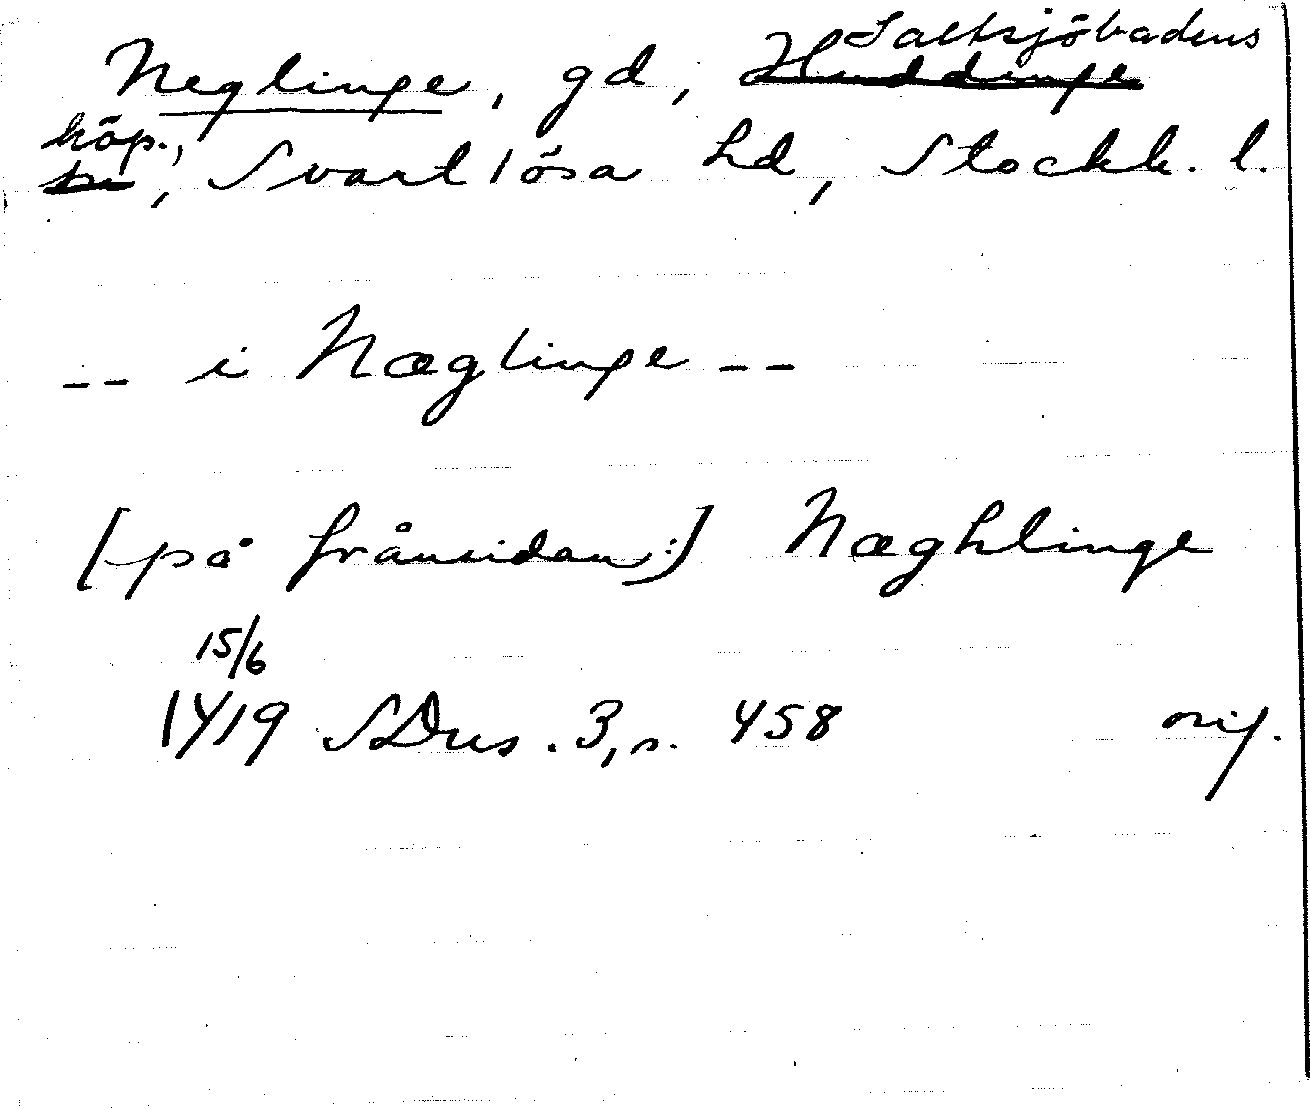 Neglinge, gd, Huddinge Saltsjöbadens
köp., sn, Svartlösa hd, Stockh. l.
-- i Næglinge --
[på frånsidan:] Næghlinge
15/6
1419 SDns. 3, s. 458 orig.